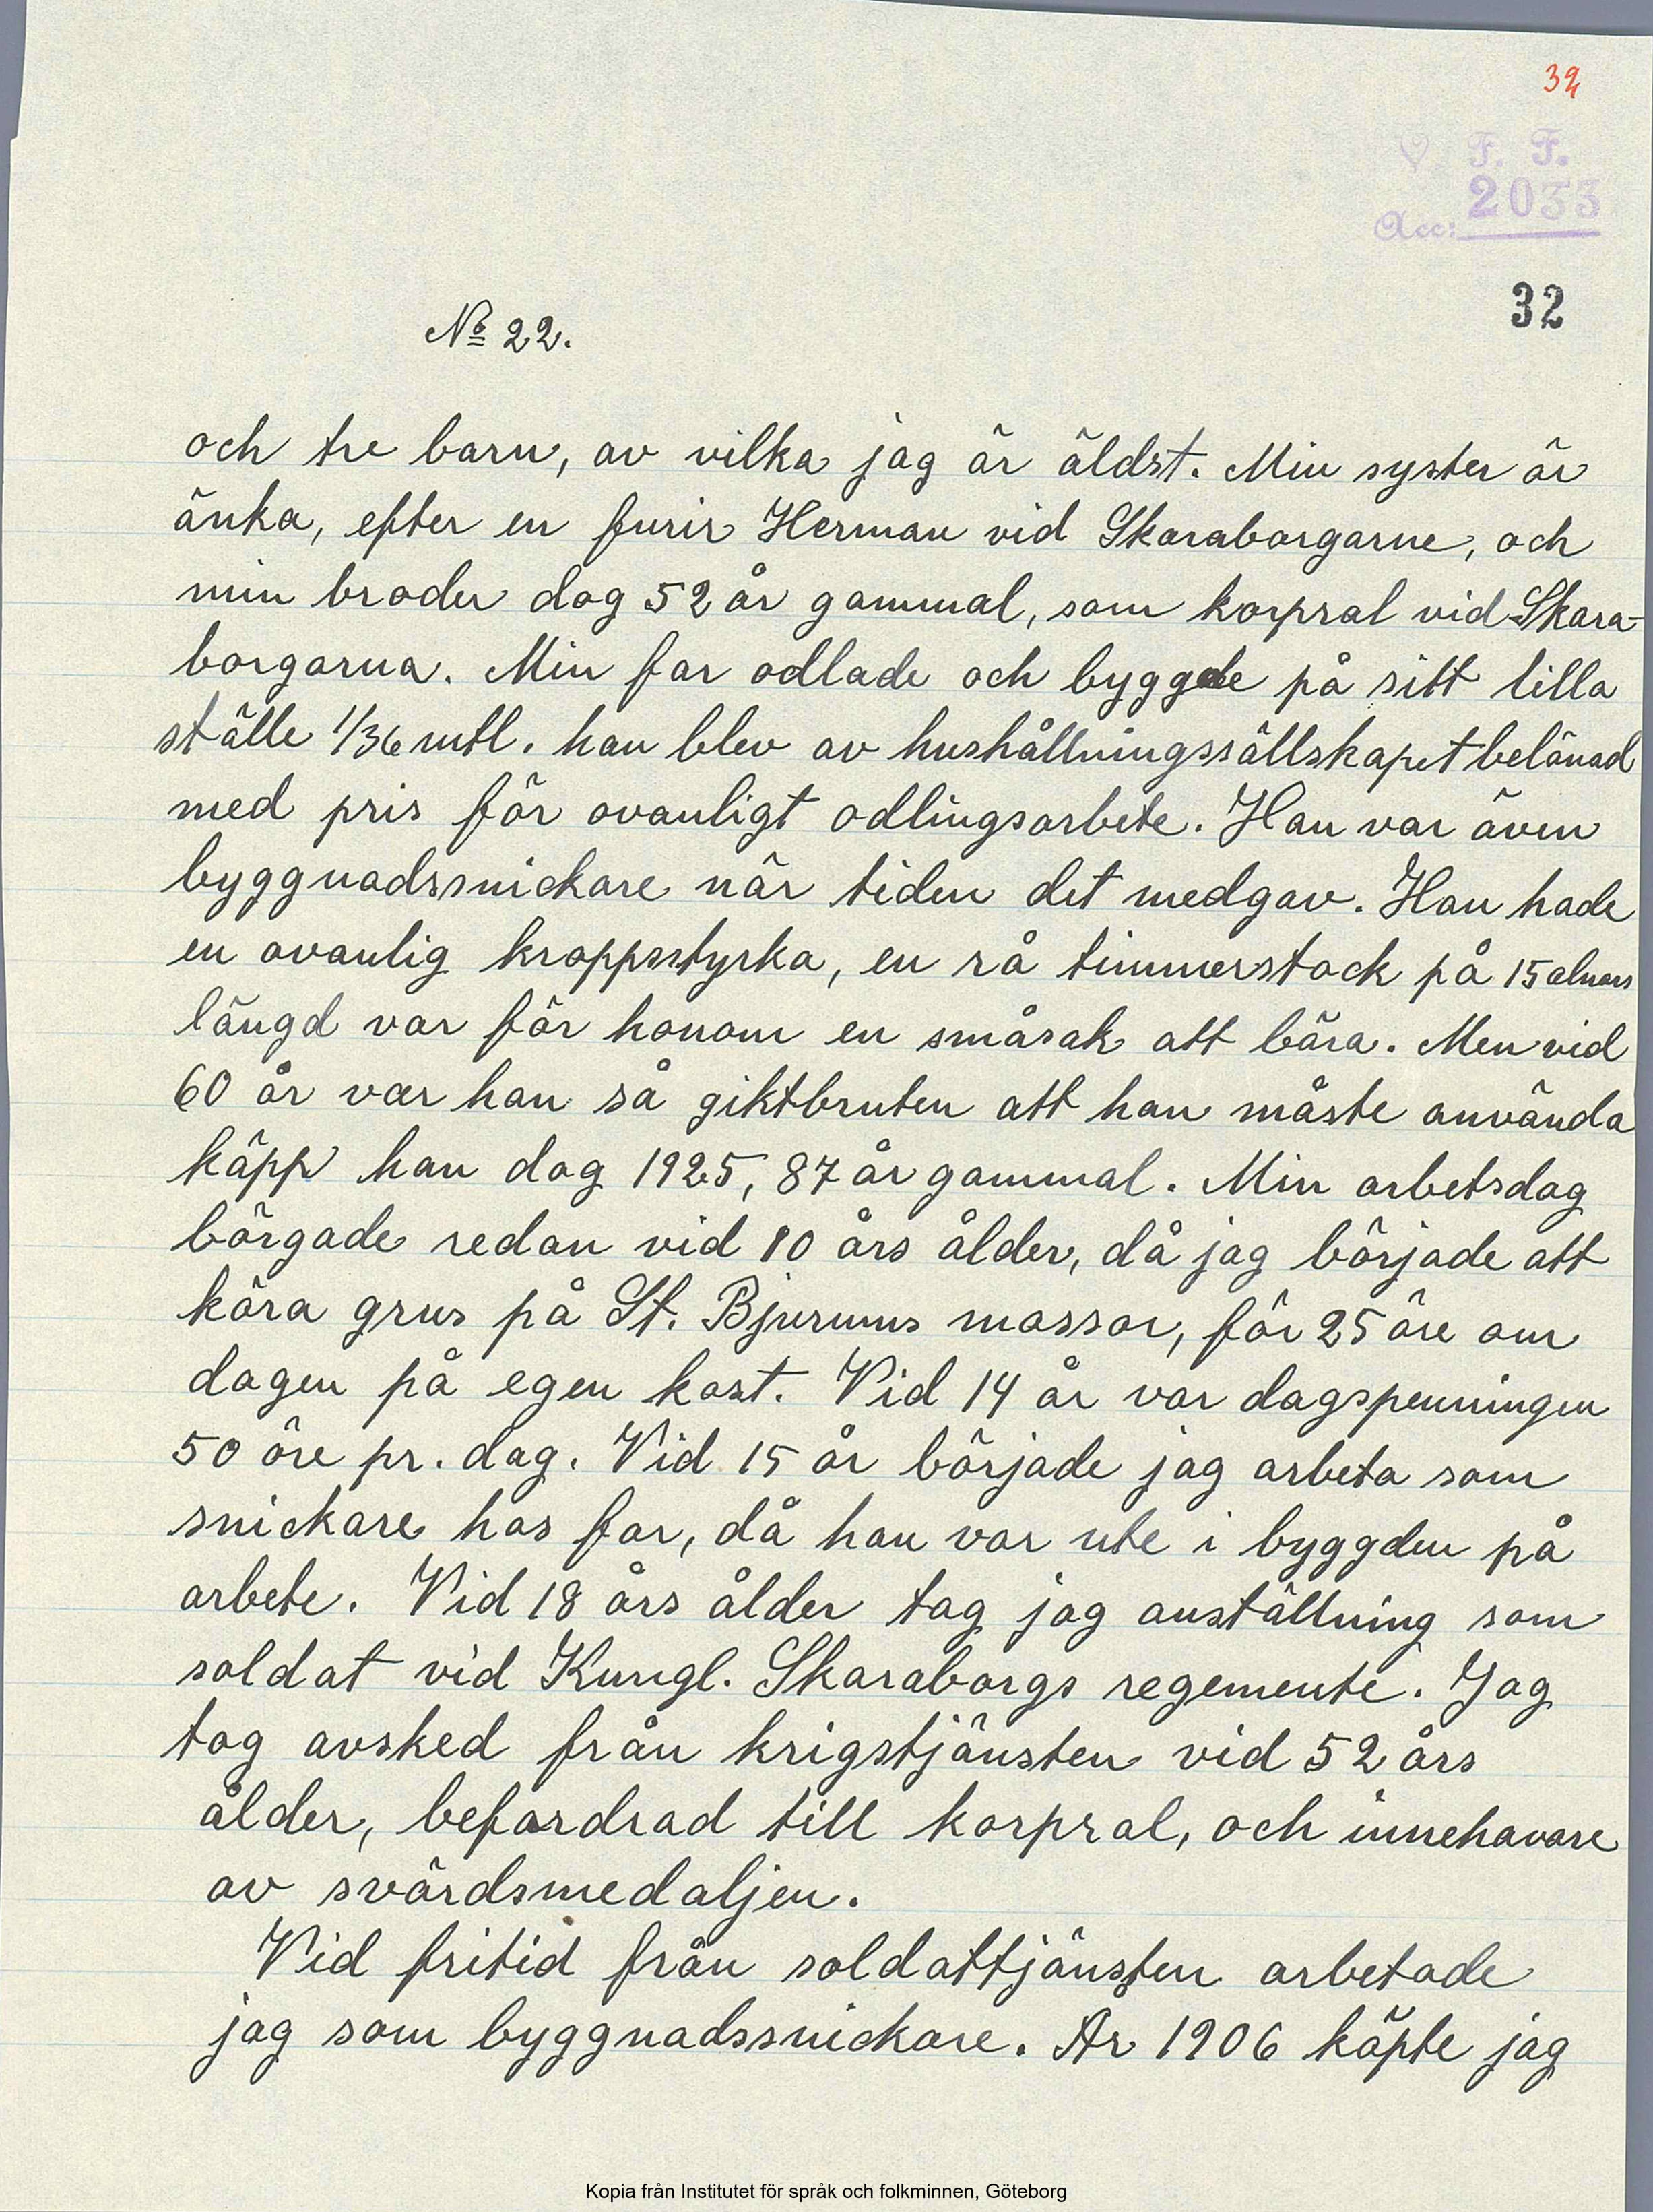 32
V. F. F.
2033
Acc:
32
No 22.
och tre barn, av vilka jag är äldst. Min syster är
änka, efter en furir Herman vid Skaraborgarne, och
min broder dog 52 år gammal, som korpral vid Skara-
borgarna. Min far odlade och byggde på sitt lilla
ställe 1/36 mtl. han blev av hushållningssällskapet belönad
med pris för ovanligt odlingsarbete. Han var även
byggnadssnickare när tiden det medgav. Han hade
en ovanlig kroppsstyrka, en rå timmerstock på 15 alnars
längd var för honom en småsak att bära. Men vid
60 år var han så giktbruten att han måste använda
käpp han dog 1925, 87 år gammal. Min arbetsdag
börgade redan vid 10 års ålder, då jag började att
köra grus på St. Bjurums mossor, för 25 öre om
dagen på egen kost. Vid 14 år var dagspenningen
50 öre pr. dag. Vid 15 år började jag arbeta som
snickare hos far, då han var ute i byggden på
arbete. Vid 18 års ålder tog jag anställning som
soldat vid Kungl. Skaraborgs regemente. Jag
tog avsked från krigstjänsten vid 52 års
ålder, befordrad till korpral, och innehavare
av svärdsmedaljen.
Vid fritid från soldattjänsten arbetade
jag som byggnadssnickare. År 1906 köpte jag
Kopia från Institutet för språk och folkminnen, Göteborg